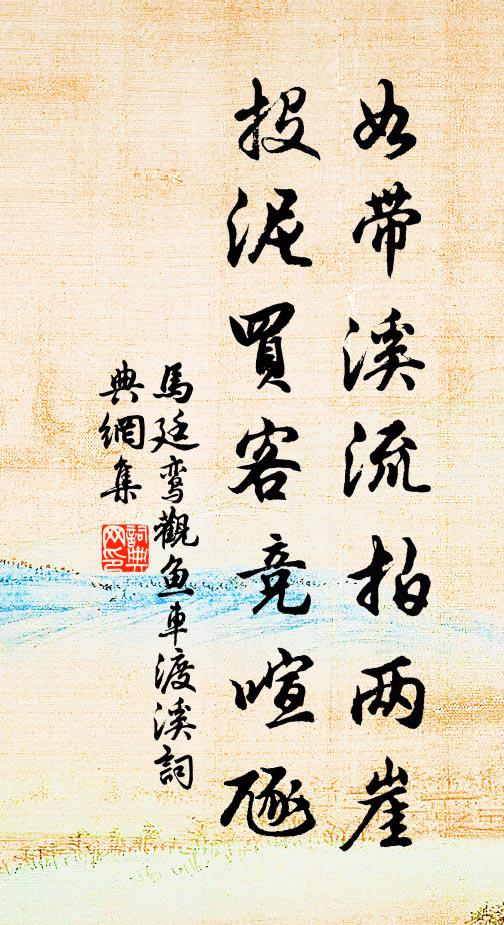 如带溪流拍两崖
投泥買客竞喧豗
馬廷鸾觀鱼車渡溪詞
典網集
詞典
网印